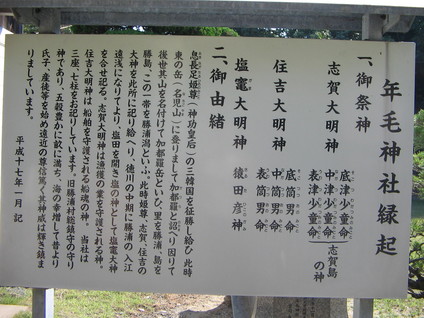 年毛神社縁起
一、御祭神
志賀大明神
底津少童命
中津少童命
表津少童命
志賀島の神
住吉大明神
底筒男命
中筒男命
表筒男命
塩竈大明神
猿田彦神
二、御由緒
息長足姫尊(神功皇后)の三韓国を征勝し給ひ此時
東の岳(名児山)に登りまして加都羅と詔へり因りて
後世其山を名付けて加都羅岳といひ、里を勝浦、島を
勝島、この一帯を勝浦潟といふ。此時姫尊、志賀、住吉の
大神を此所に記り給へり、徳川の中期に勝浦の入江
遠浅になりてより、塩田を開き塩の神として塩竈大神
を合せ記る。志賀大明神は漁獲の業を守護される神。
住吉大明神は船舶を守護される船魂の神。当社は
三座、七柱をお祀りしています。旧勝浦村総鎮守の守り
神であり、五穀豊かに穀に満ち、海の幸増して昔より
氏子、産徒等を始め遠近の尊信篤く其神威は輝き鎮ま
りましています。
平成十七年一月 記